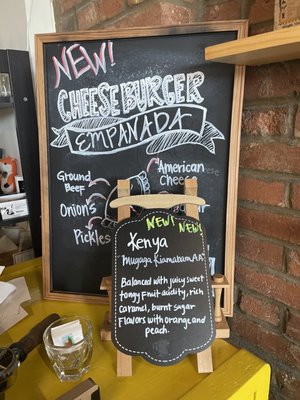 NEW!
CHEESEBURGER
EMPANADA
Ground
Beef
American
Cheese
Onions
Pickles
NEW!
NEW!
Kenya
Mugaga Kiamabara AA
Balanced with juicy sweet
tangy Fruit audity, rich
caramel, burnt Sugar
Flavors with orange and
peach.